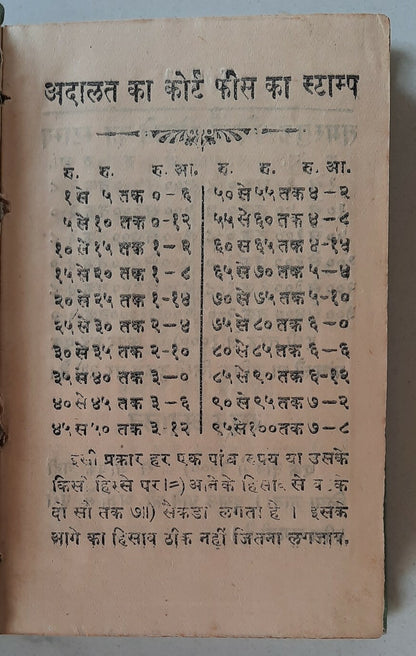 अदालत का कोर्ट फीस का स्टाम्प
रु. रु. रु. आ. रु. रु. रु. आ.
१ से ५ तक ०-६ ५० से ५५ तक ४-२
५ से १० तक ०-१२ ५५ से ६० तक ४-८
१० से १५ तक १-२ ६० से ६५ तक ४-१४
१५ से २० तक १-८ ६५ से ७० तक ५-४
२० से २५ तक १-१४ ७० से ७५ तक ५-१०
२५ से ३० तक २-४ ७५ से ८० तक ६-०
३० से ३५ तक २-१० ८० से ८५ तक ६-६
३५ स ४० तक ३-० ८५ से ९० तक ६-१२
४० से ४५ तक ३-६ ९० से ९५ तक ७-२
४५ स ५० तक ३-१२ ९५ से १०० तक ७-८
इसी प्रकार हर एक पांच रुपय या उसके
किसी हिस्से पर ।=) आनेके हिसाब से
दो सौ तक ७॥) सैकडा लगता है । इसके
आगे का हिसाब ठीक नहीं जितना लगजाय.